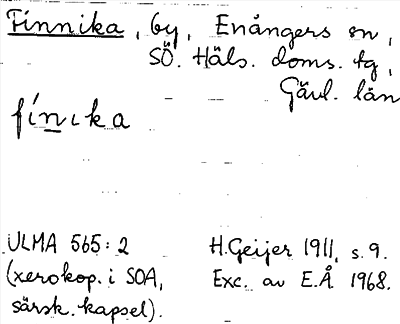 Finnika, by, Enångers sn,
SÖ. Häls. doms. tg,
Gävl. län
fínıka
ULMA 565:2
(xerokop. i SOA,
särsk. kapsel).
H.Geijer 1911, s. 9.
Exc. av E.Å 1968.